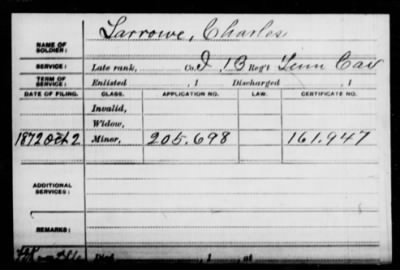 Larrowe, Charles
NAME OF SOLDIER:
SERVICE: Late rank, Co. I, 13 Reg't Tenn Cav
TERM OF SERVICE: Enlisted , 1 Discharged , 1
DATE OF FILING. CLASS. APPLICATION NO. LAW. CERTIFICATE NO.
Invalid,
Widow,
1872 Oct 2 Minor, 205.698 161.947
ADDITIONAL SERVICES:
REMARKS:
Died , 1 , at